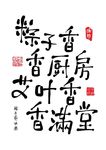 粽子香
香厨房
艾叶香
香滿堂